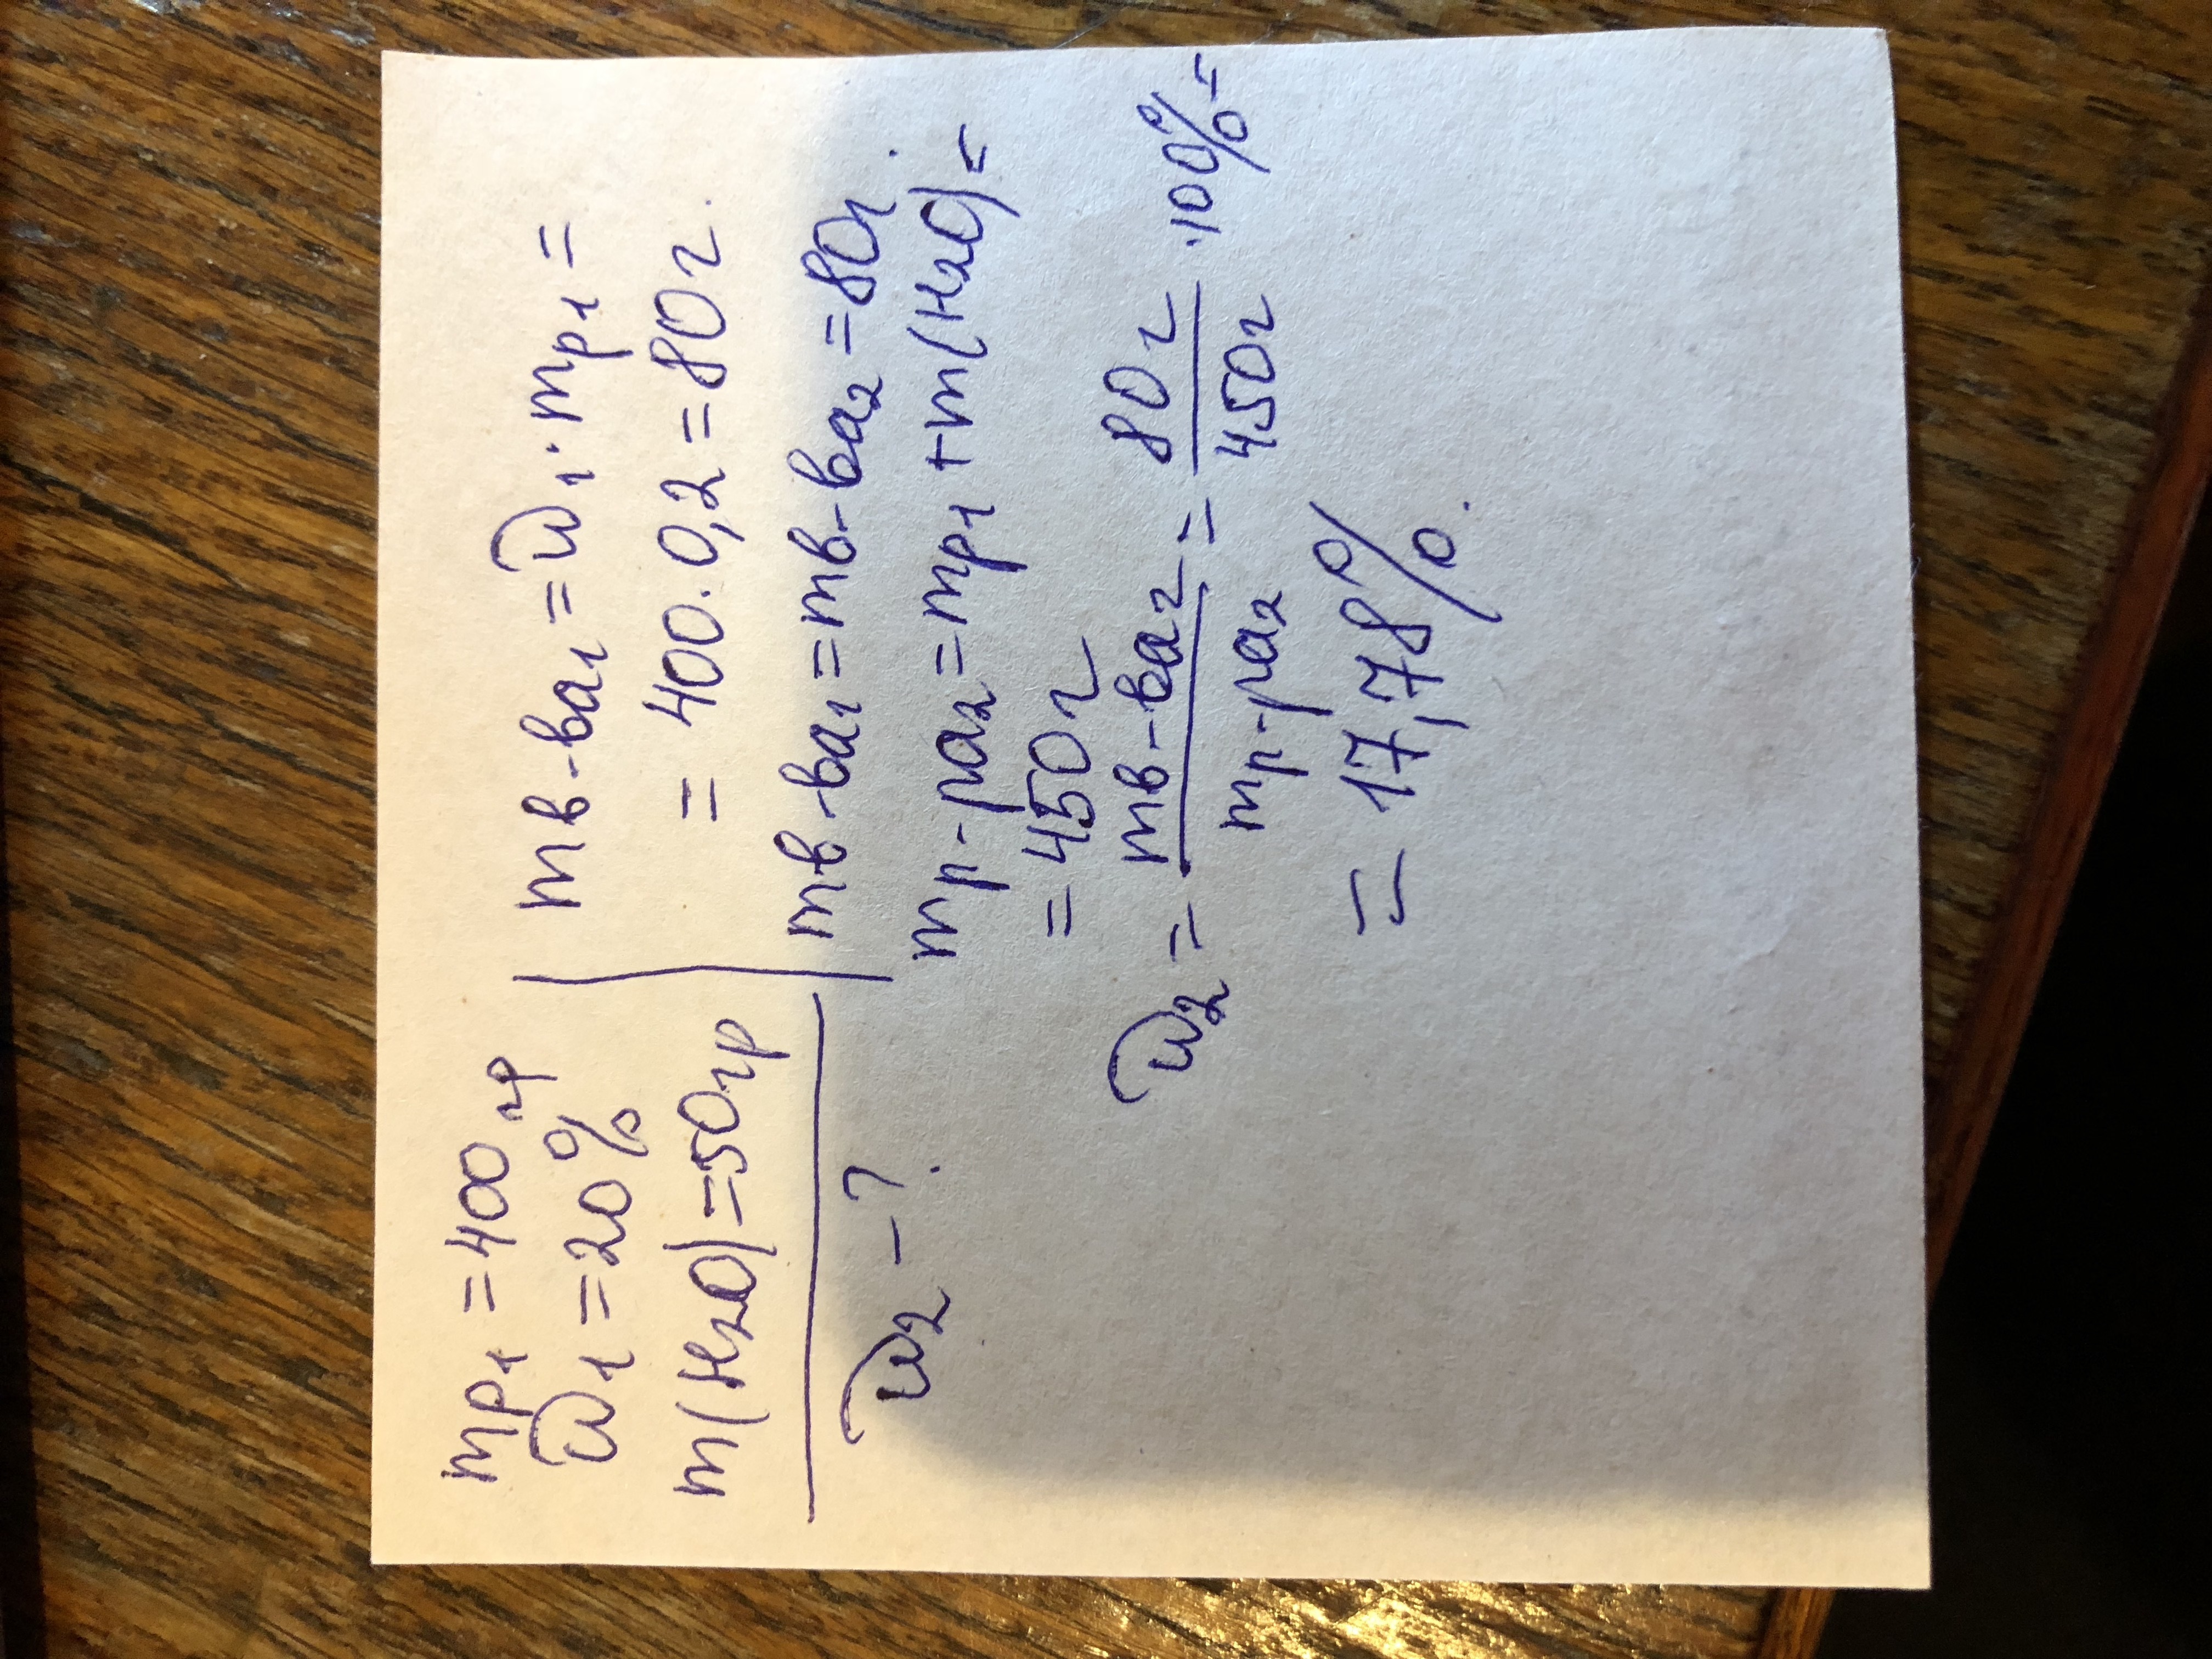 mp₁ = 400 гр
ω₁ = 20%
m(H₂O) = 50 гр
ω₂ - ?
mв-ва₁ = ω₁ · mp₁ =
= 400 · 0,2 = 80 г.
mв-ва₁ = mв-ва₂ = 80 г.
mр-ра₂ = mp₁ + m(H₂O) =
= 450 г
ω₂ = mв-ва₂ / mр-ра₂ = 80 г / 450 г · 100% =
= 17,78%.